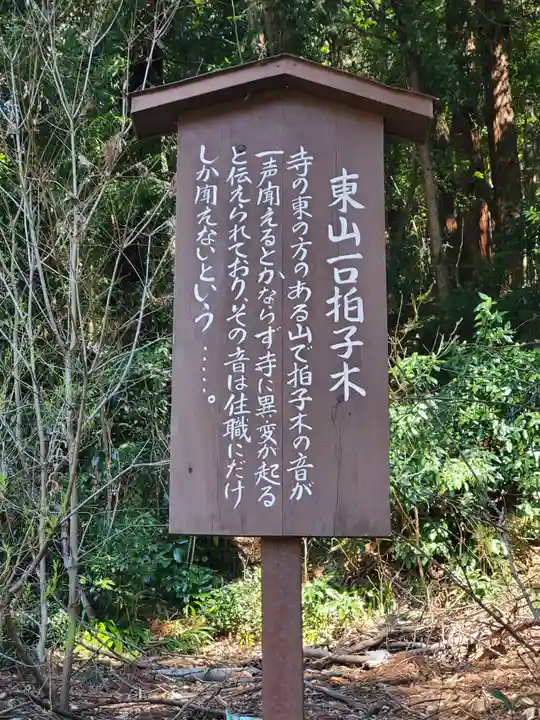 東山一口拍子木
寺の東の方のある山で拍子木の音が
一声聞えるとかならず寺に異変が起る
と伝えられており、その音は住職にだけ
しか聞えないという……。